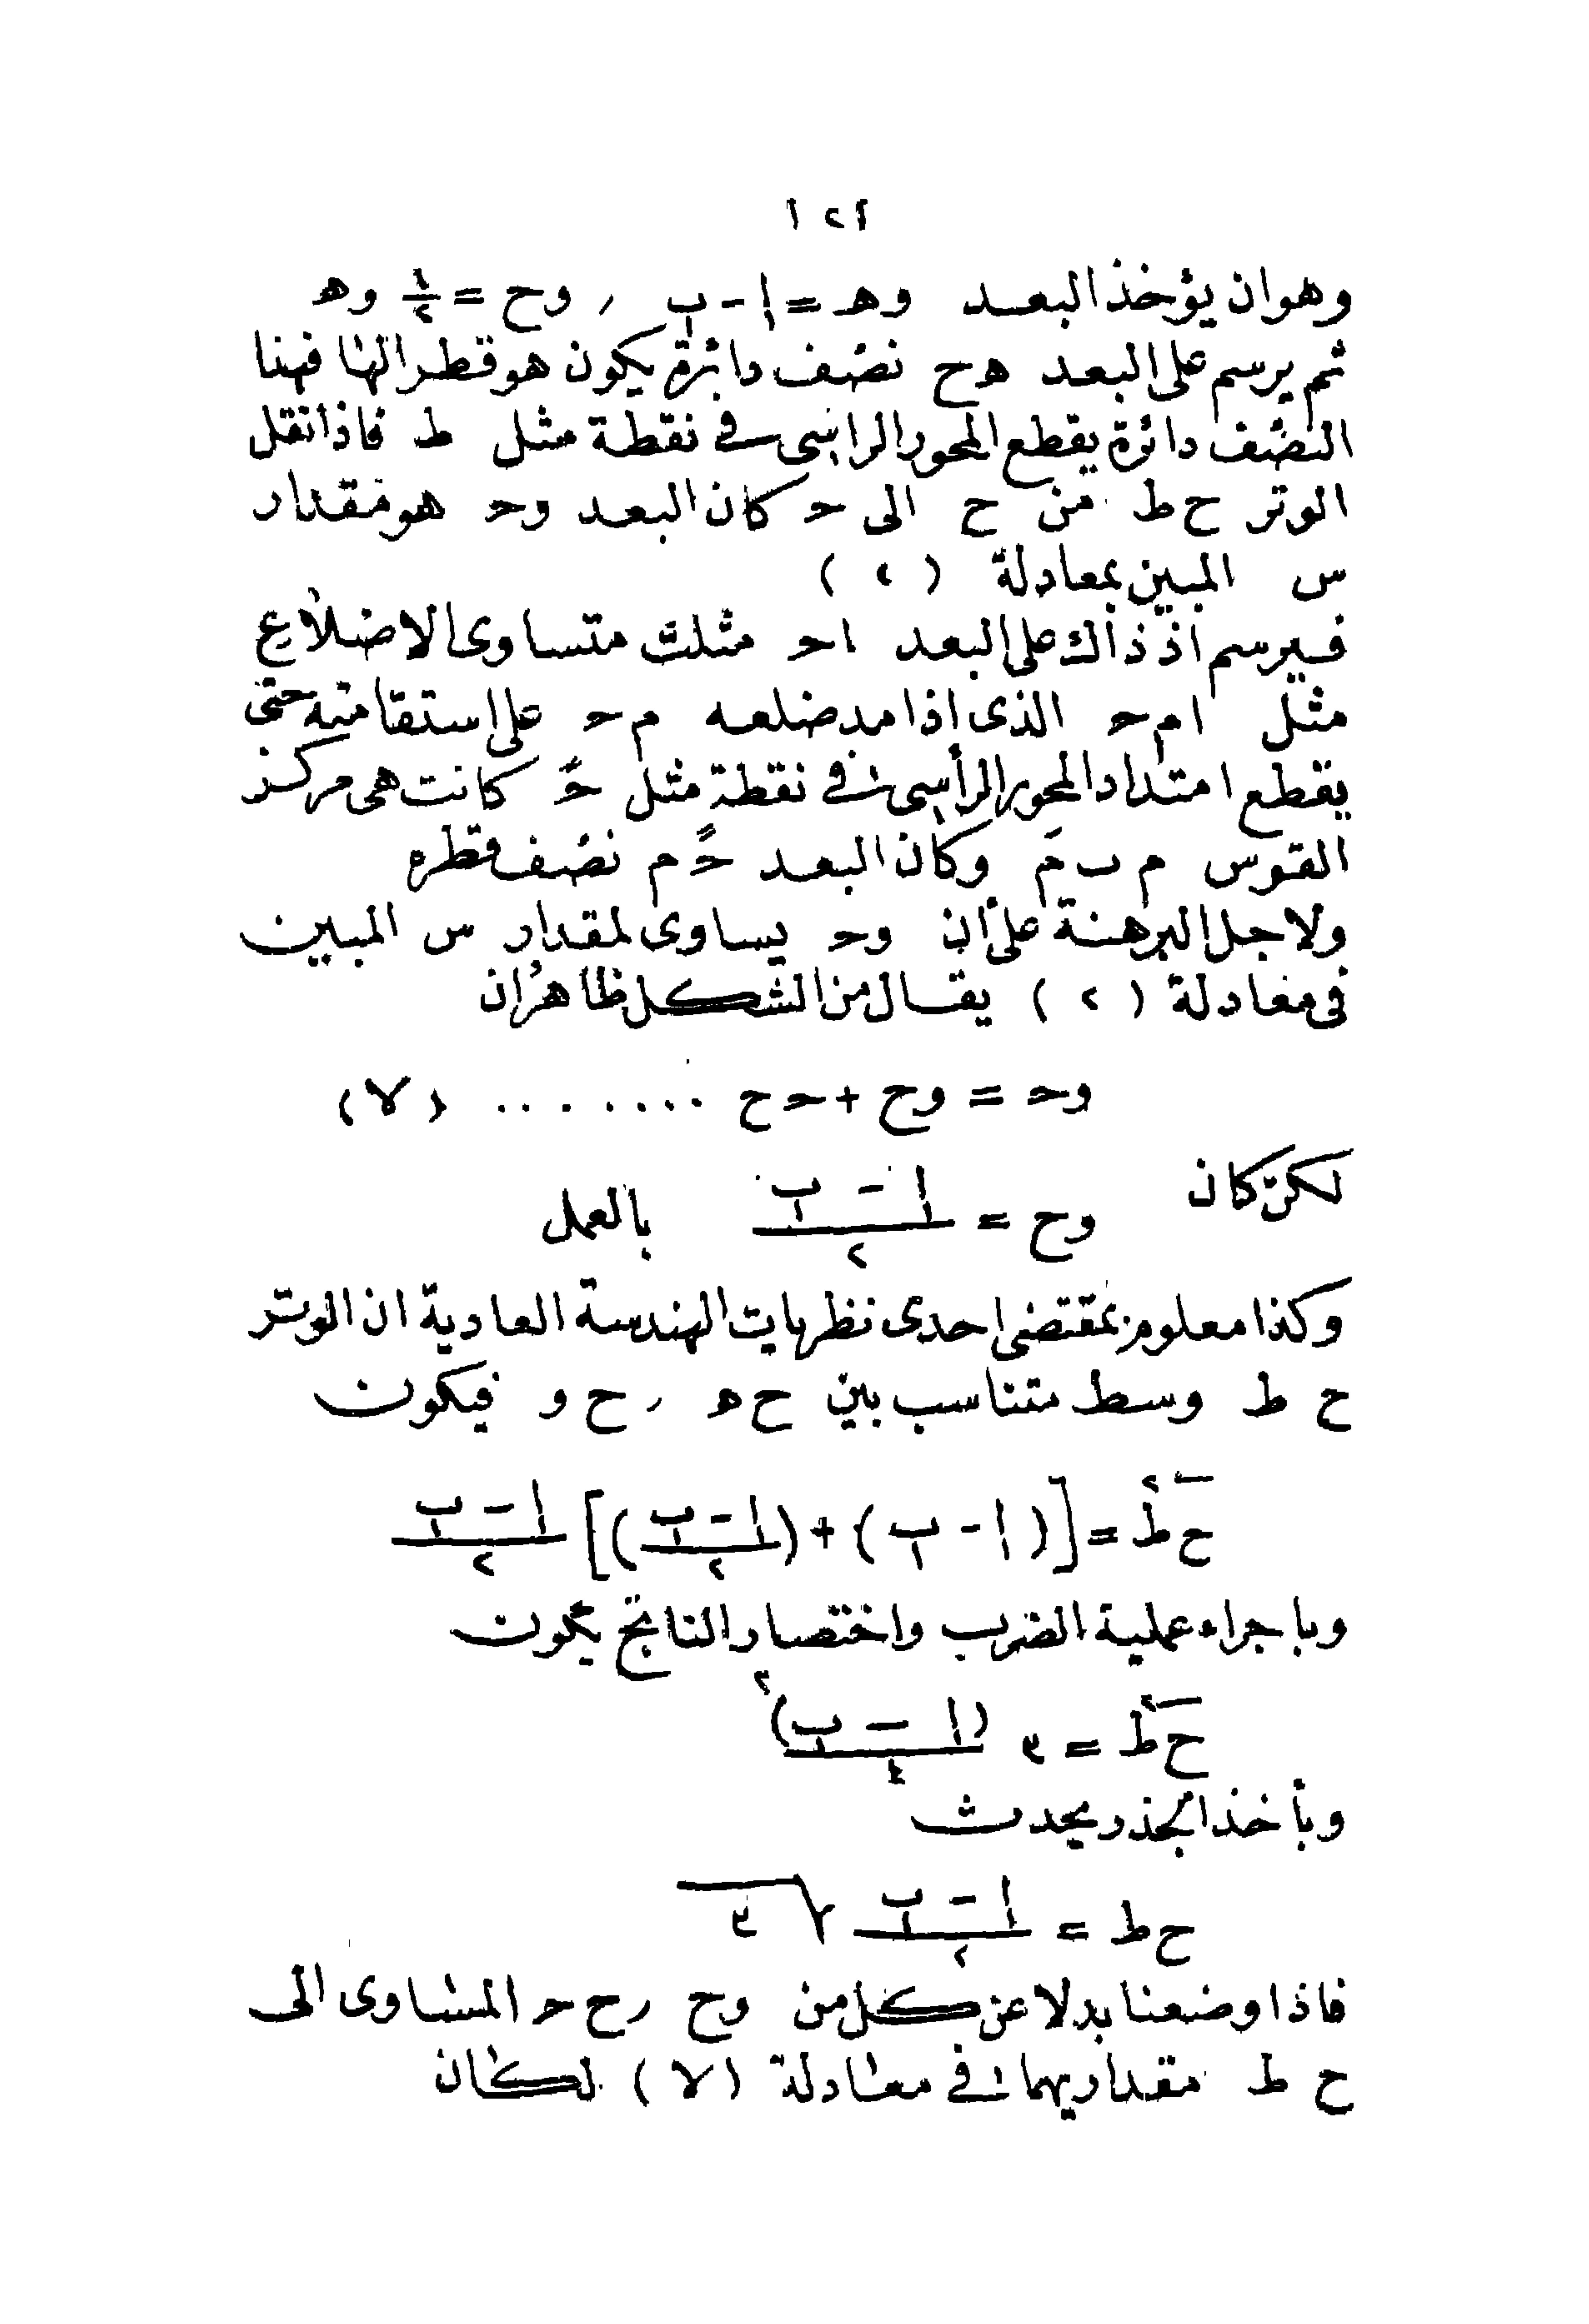 ١٢١
وهوان يؤخذ البعد وهـ = ا - ب , وح = ١/٢ وهـ
ثم يرسم على البعد هح نصف دائرة يكون هو قطرا لها فهنا
النصف دائرة يقطع المحور الراسى فى نقطة مثل ط فاذا نقل
الوتر ح ط من ح الى حـ كان البعد وحـ هو مقدار
س المبين بمعادلة (٢)
فيرسم اذ ذاك على البعد احـ مثلث متساوى الاضلاع
مثل ام حـ الذى اذا مد ضلعه م حـ على استقامته حتى
يقطع امتداد المحور الرأسى فى نقطة مثل حـً كانت هى مركز
القوس م ب مَ وكان البعد حـً م نصف قطره
ولاجل البرهنة على أن وحـ يساوى لمقدار س المبين
فى معادلة (٢) يقال من الشكل ظاهر ان
وحـ = وح + حـ ح ........ (٧)
لكن كان وح = (ا - ب)/٢ بالعمل
وكذا معلوم بمقتضى احدى نظريات الهندسة العادية ان الوتر
ح ط وسط متناسب بين ح هـ , ح و فيكون
ح ط٢ = [(ا - ب) + ((ا - ب)/٢)] (ا - ب)/٢
وباجراء عملية الضرب واختصار الناتج يكون
ح ط٢ = ٣ (ا - ب)٢/٤
وبأخذ الجذر يحدث
ح ط = (ا - ب)/٢ √٣
فاذا وضعنا بدلا عن كل من وح , ح حـ المساوى الى
ح ط مقداريهما فى معادلة (٧) لكان